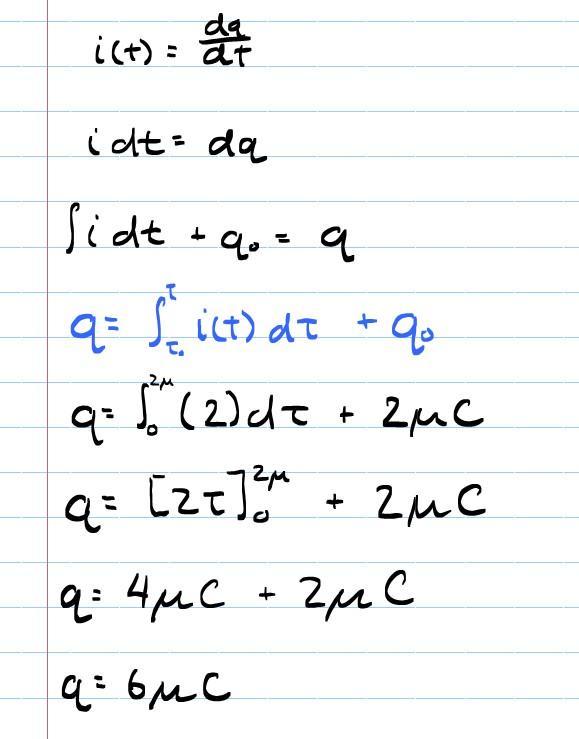 i(t) = dq/dt
i dt = dq
∫i dt + q₀ = q
q = ∫_τ₀^τ i(t) dτ + q₀
q = ∫₀^2μ (2) dτ + 2μC
q = [2τ]₀^2μ + 2μC
q = 4μC + 2μC
q = 6μC